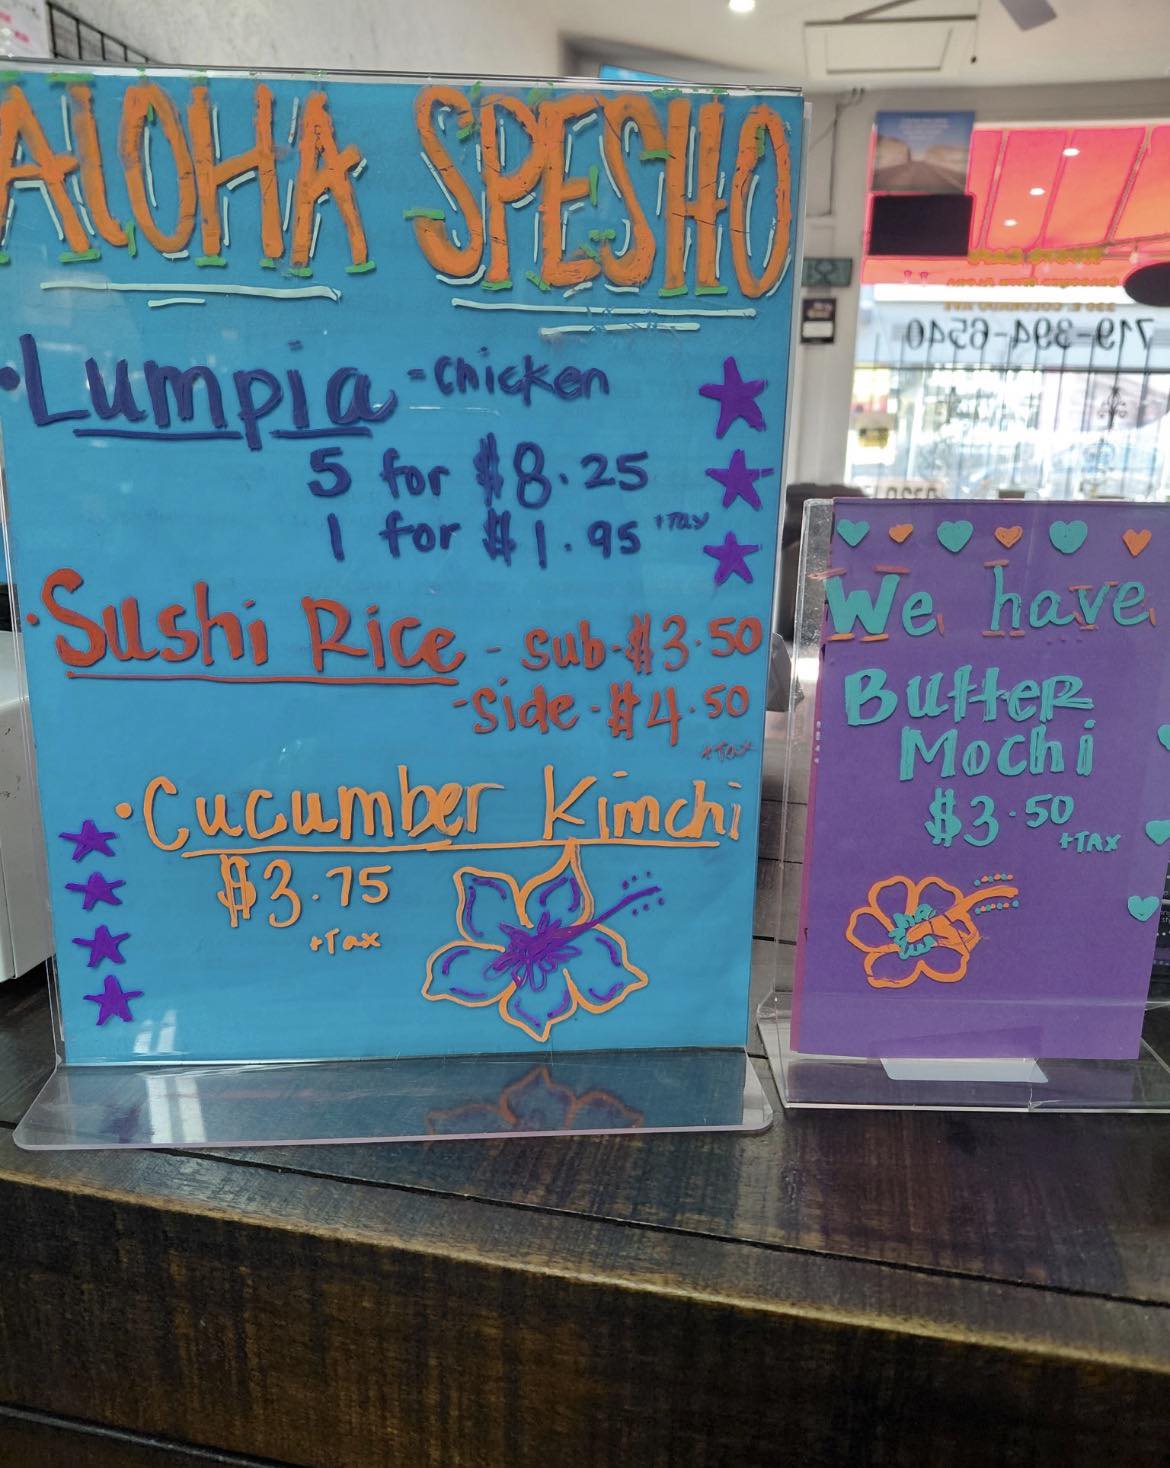 ALOHA SPESHO
• Lumpia - Chicken
5 for $8.25
1 for $1.95 +Tax
• Sushi Rice - sub - $3.50
- Side - $4.50
+Tax
• Cucumber Kimchi
$3.75
+Tax
We have
Butter
Mochi
$3.50
+TAX
719-394-6540